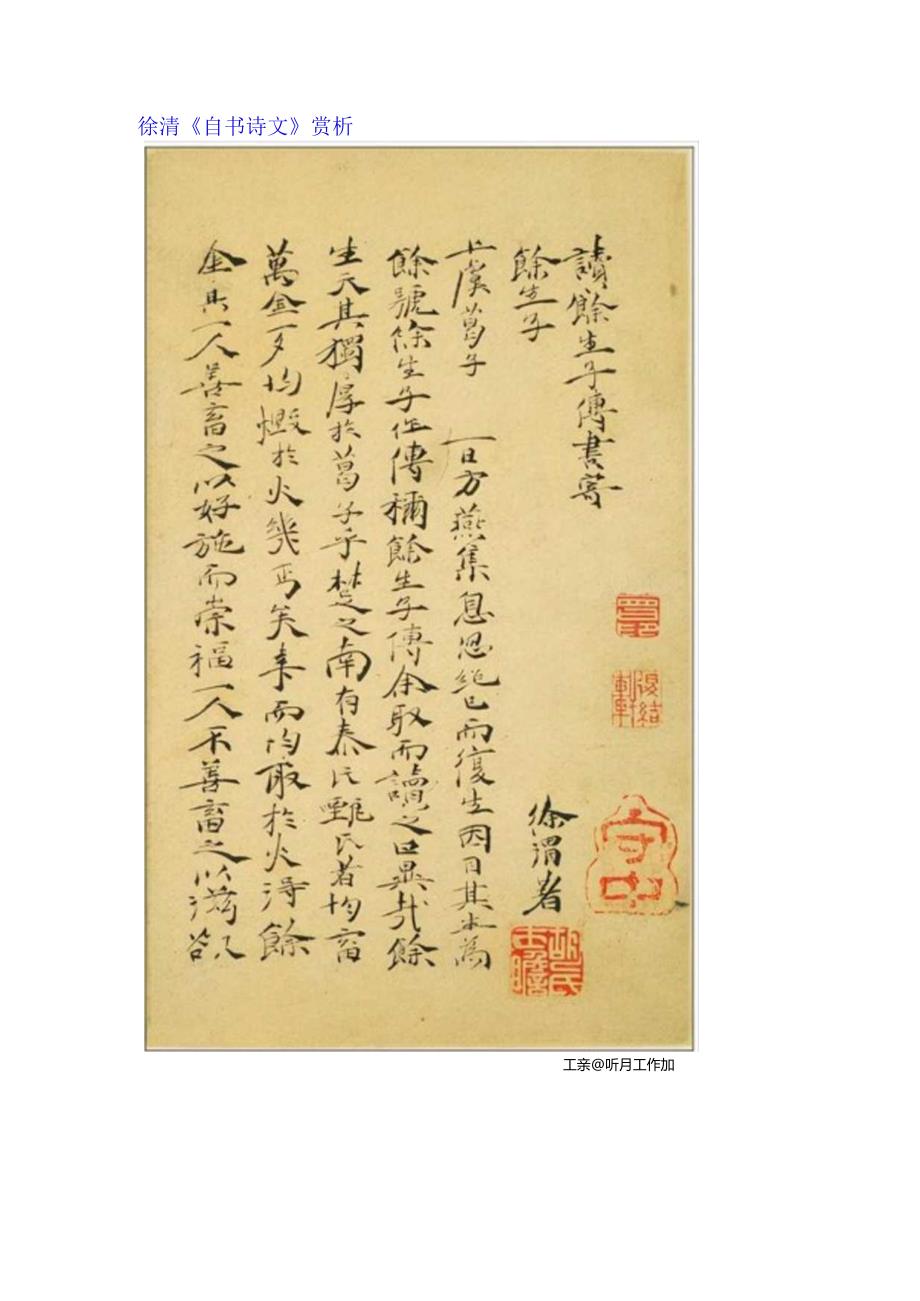 徐清《自书诗文》赏析
讀餘生子傳書寄
餘生子
徐渭著
上虞葛子 一日方燕集息忽絕已而復生因自其生為
餘號徐生子作傳稱餘生子傳余取而讀之曰異哉餘
生天其獨厚於葛子乎楚之南有泰氏甄氏者均畜
萬金一夕均燬於火幾丐矣未而均取於火得餘
金其一人善畜之以好施而崇福一人不善畜之以滋欲
守中
工亲@听月工作加